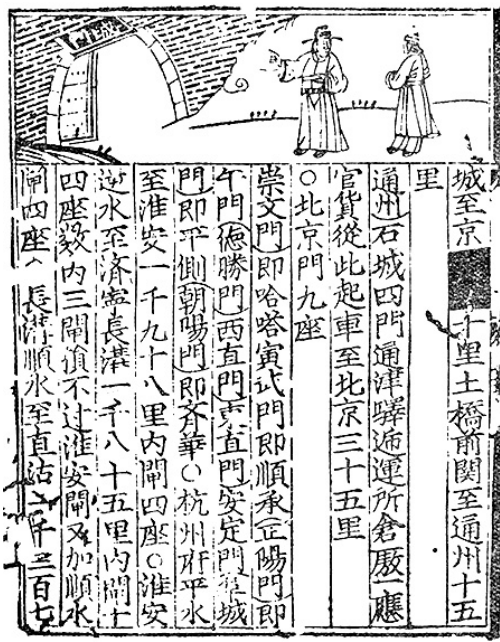 城至京十里土橋前関至通州十五
里
通州)石城四門通津驛逓運所倉厫一應
官貨從此起車至北京三十五里
○北京門九座
崇文門(即哈塔寅武門即順承正陽門(即
午門(德勝門)西直門(東直門(安定門城
門(即平側(朝陽門(即齊華○杭州府平水
至淮安一千九十八里内閘四座○淮安
逆水至済寧長溝一千八十五里内閘十
四座數内三閘不过淮安閘又加順水
閘四座 長溝順水至直沽千三百七